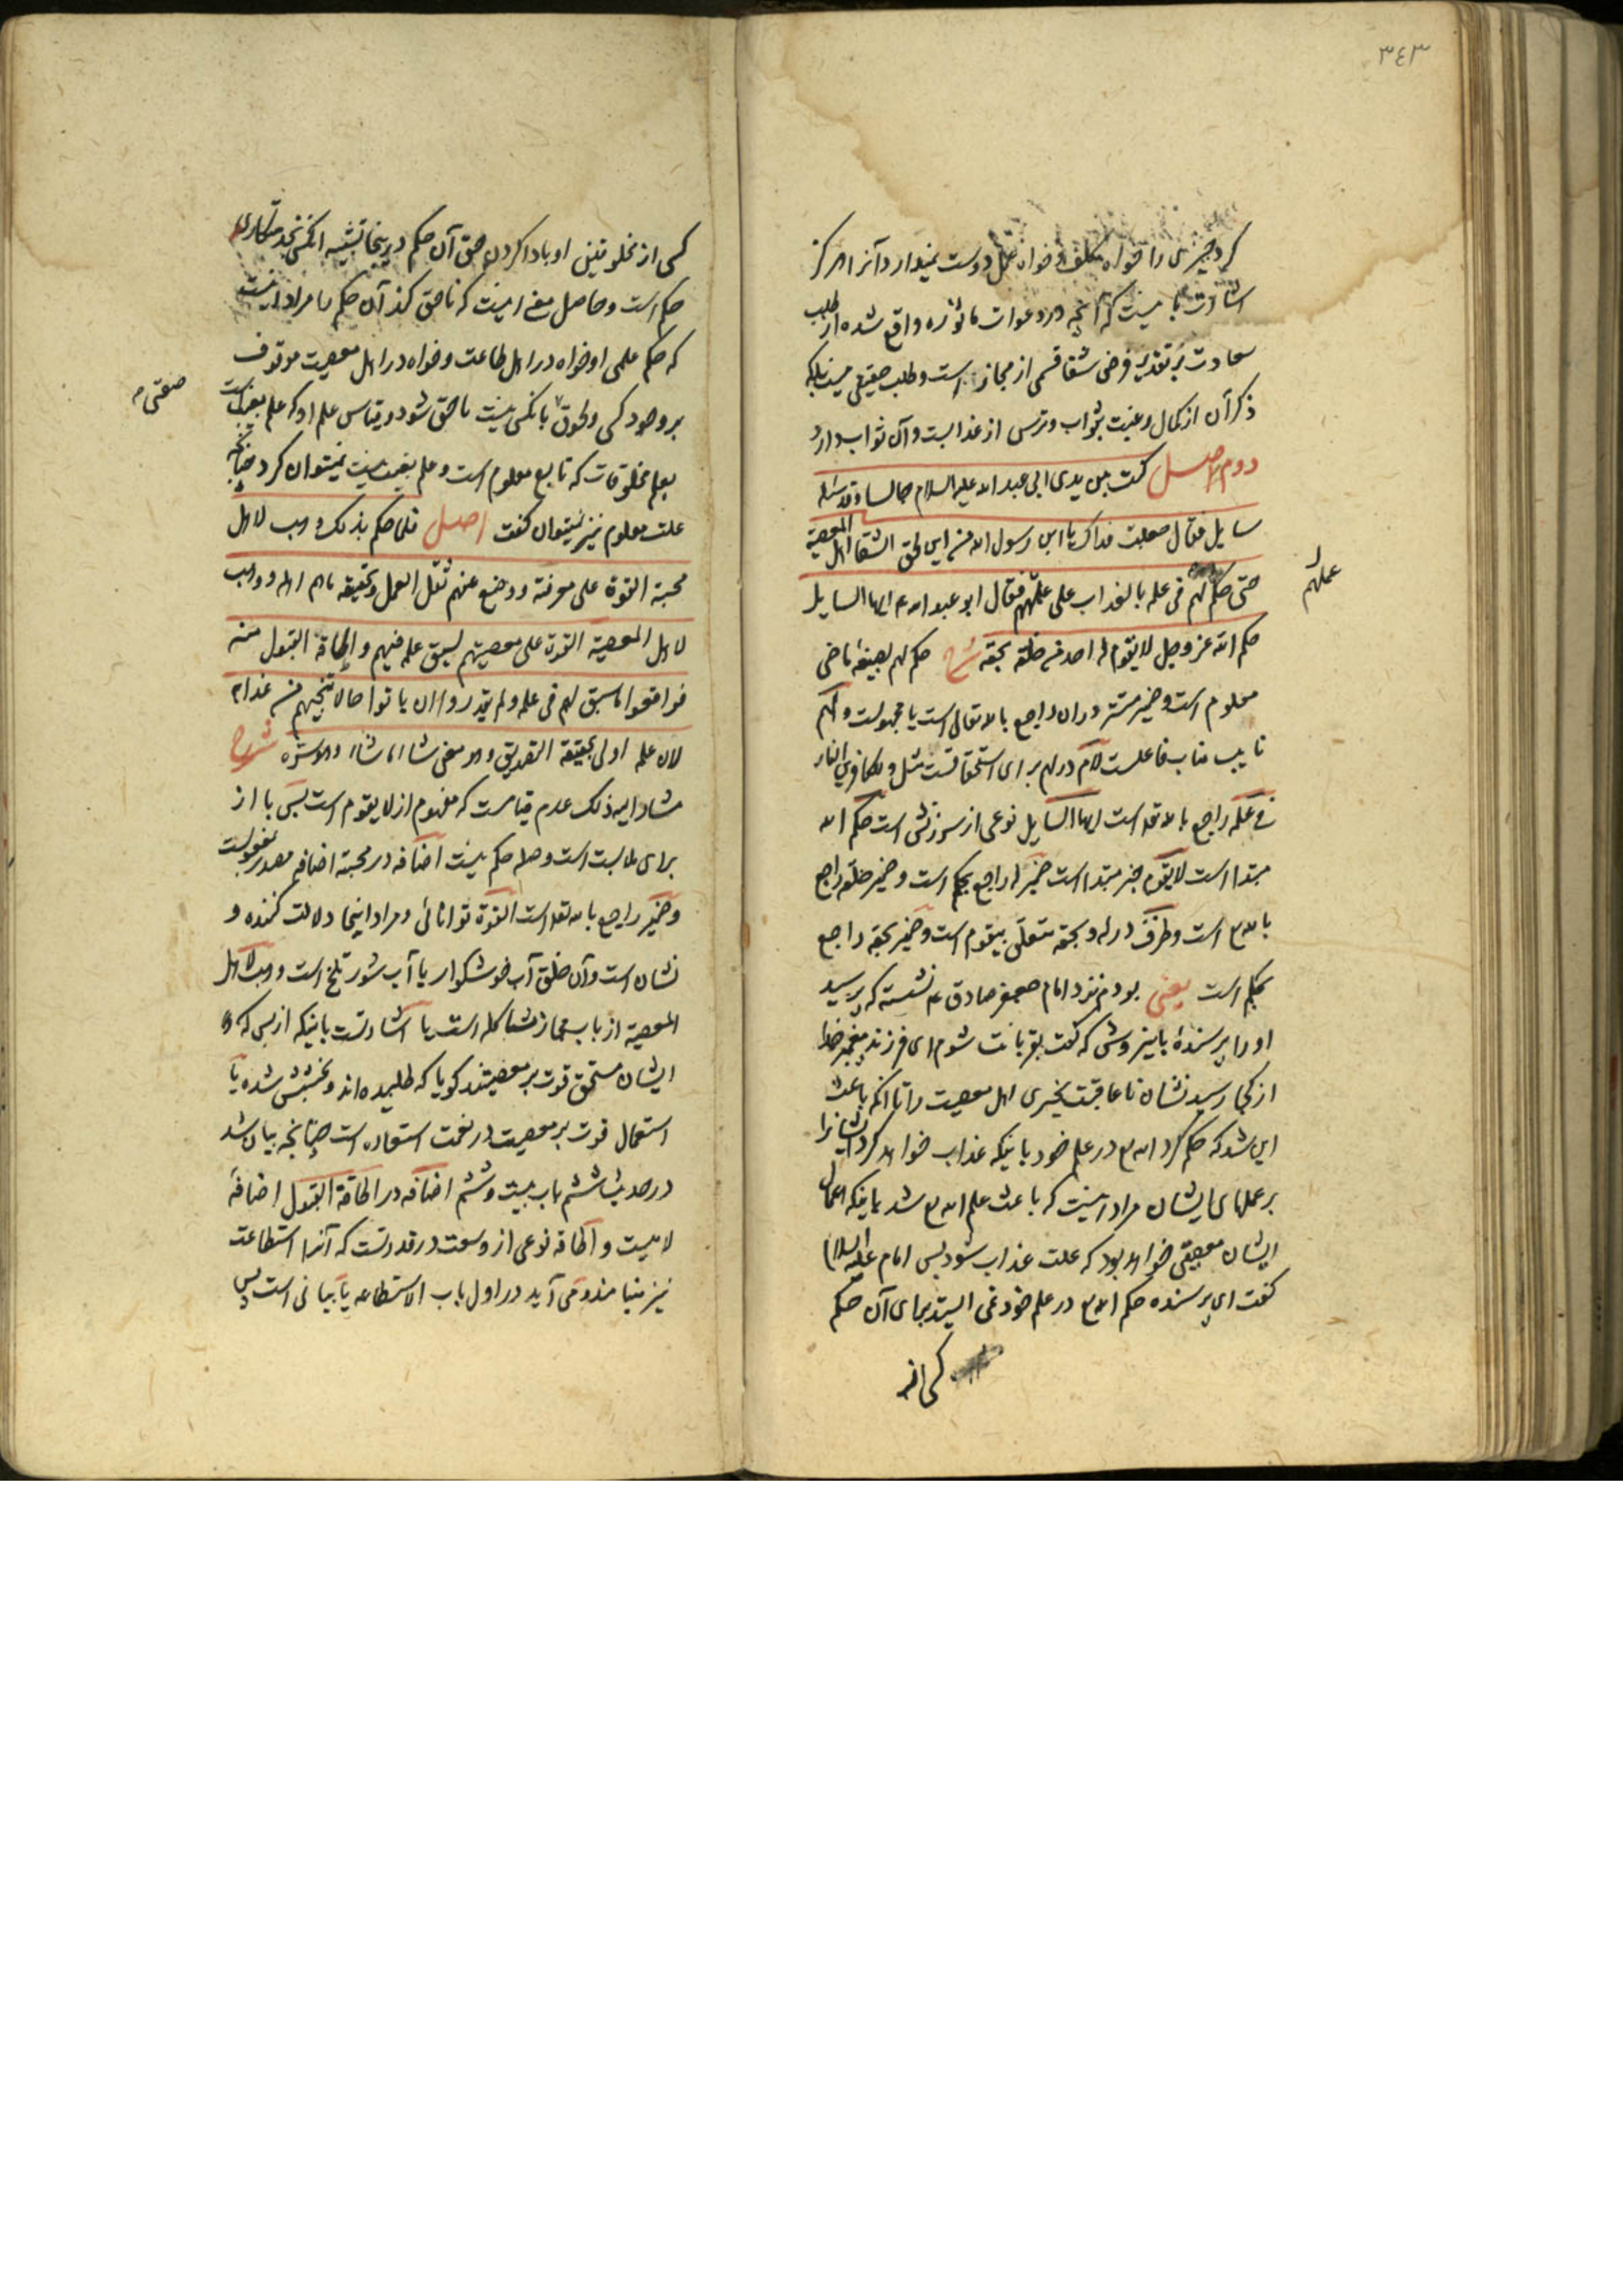 ٣٤٣
کرد چیزی را خواه مکلف و خواه عمل دوست نمیدارد آنرا هرگز
اشارت باینست که آنچه در دعوات ماثوره واقع شده از طلب
سعادت بر تقدیر فرض شقا قسمی از مجاز است و طلب حقیقی نیست بلکه
ذکر آن از کمال رغبت بثواب و ترس از عذابست و آن ثواب دارد
دوم اصل کنت بین یدی ابی عبد الله علیه السلام جالسا و قد سئله
سایل فقال جعلت فداک یا ابن رسول الله من این لحق الشقا اهل المعصیة
حتی حکم لهم فی علمه بالعذاب علی عملهم فقال ابو عبد الله ع ایها السایل
عملهم
حکم الله عز و جل لا یقوم له احد من خلقه بحقه شرح حکم لهم بصیغه ماضی
معلوم است و ضمیر مستتر در آن راجع بالله تعالی است یا مجهولست و لهم
نایب مناب فاعلست لام در لهم برای استحقاقست مثل و للکافرین النار
فی علمه راجع بالله تعالی است ایها السایل نوعی از سرزنش است حکم الله
مبتدا است لا یقوم خبر مبتدا است ضمیر له راجع بحکم است و ضمیر خلقه راجع
بالله ع است و ظرف در له و بحقه متعلق بیقوم است و ضمیر بحقه راجع
بحکم است یعنی بودم نزد امام جعفر صادق ع نشسته که پرسید
او را پرسندهٔ باینروش که گفت بقربانت شوم ای فرزند پیغمبر خدا
از کجا رسید نشان ناعاقبت بخیری اهل معصیت را تا آنکه باعث
این شد که حکم کرد الله ع در علم خود باینکه عذاب خواهد کرد ایشانرا
بر عملهای ایشان مراد اینست که باعث علم الله ع شد باینکه اعمال
ایشان معصیتی خواهد بود که علت عذاب شود پس امام علیه السلام
گفت ای پرسنده حکم الله ع در علم خود نمی ایستد بجای آن حکم
کسی از
کسی از مخلوقین او بادا کردن حق آن حکم در اینجا تشبیه
حکم است و حاصل معنی اینست که ناحق کند آن حکم را مراد اینست
که حکم علمی او خواه در اهل طاعت و خواه در اهل معصیت موقوف
بر وجود کسی و لحوق بآنکس نیست ناحق شود و قیاس علم او که علم بغیب است
صفتی
بعلم مخلوقات که تابع معلوم است و علم بغیب نیست نمیتوان کرد چنانچه
علت معلوم نیز نمیتوان گفت اصل فلما حکم بذلک وهب لاهل
محبته القوة علی معرفته و وضع عنهم ثقل العمل بحقیقه ما هم اهله و وهب
لاهل المعصیة القوة علی معصیتهم لسبق علمه فیهم و اطاقة القبول منه
فواقعوا ما سبق لهم فی علمه و لم یقدروا ان یاتوا حالا تنجیهم من عذابه
لان علمه اولی بحقیقة التصدیق و هو معنی شاء ما شاء و هو سره شرح
مشار الیه ذلک عدم قیامست که مفهوم از لا یقوم است پس با از
برای ملابست است و صله حکم نیست اضافه در محبته اضافه مصدر بمفعولست
و ضمیر راجع بالله تعالی است القوة توانائی و مراد اینجا دلالت کننده و
نشان است و آن خلق آب خوشگوار یا آب شور تلخ است وهب لاهل
المعصیة از باب مجاز مشاکله است یا اشارتست باینکه از بس که
ایشان مستحق قوت بر معصیتند گویا که طلبیده اند و بخشش شده یا
استعمال قوت بر معصیت در نعمت استعاره است چنانچه بیان شد
در حدیث ششم باب بیست و ششم اضافه در اطاقة القبول اضافهٔ
لامیست و اطاقه نوعی از وسعت در قدرتست که آنرا استطاعت
نیز مینامند و می آید در اول باب الاستطاعه یا بیانی است پس